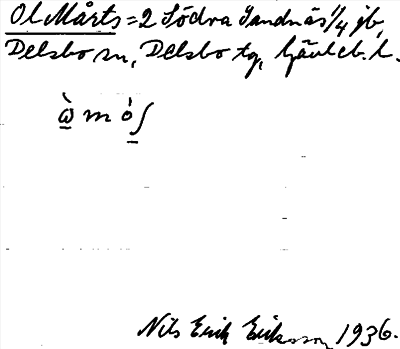 Ol Mårts = 2 Södra Sandnäs 1/4 jb,
Delsbo sn, Delsbo tg, Gävleb. l.
ὼ m ó ʃ
Nils Erik Eriksson 1936.